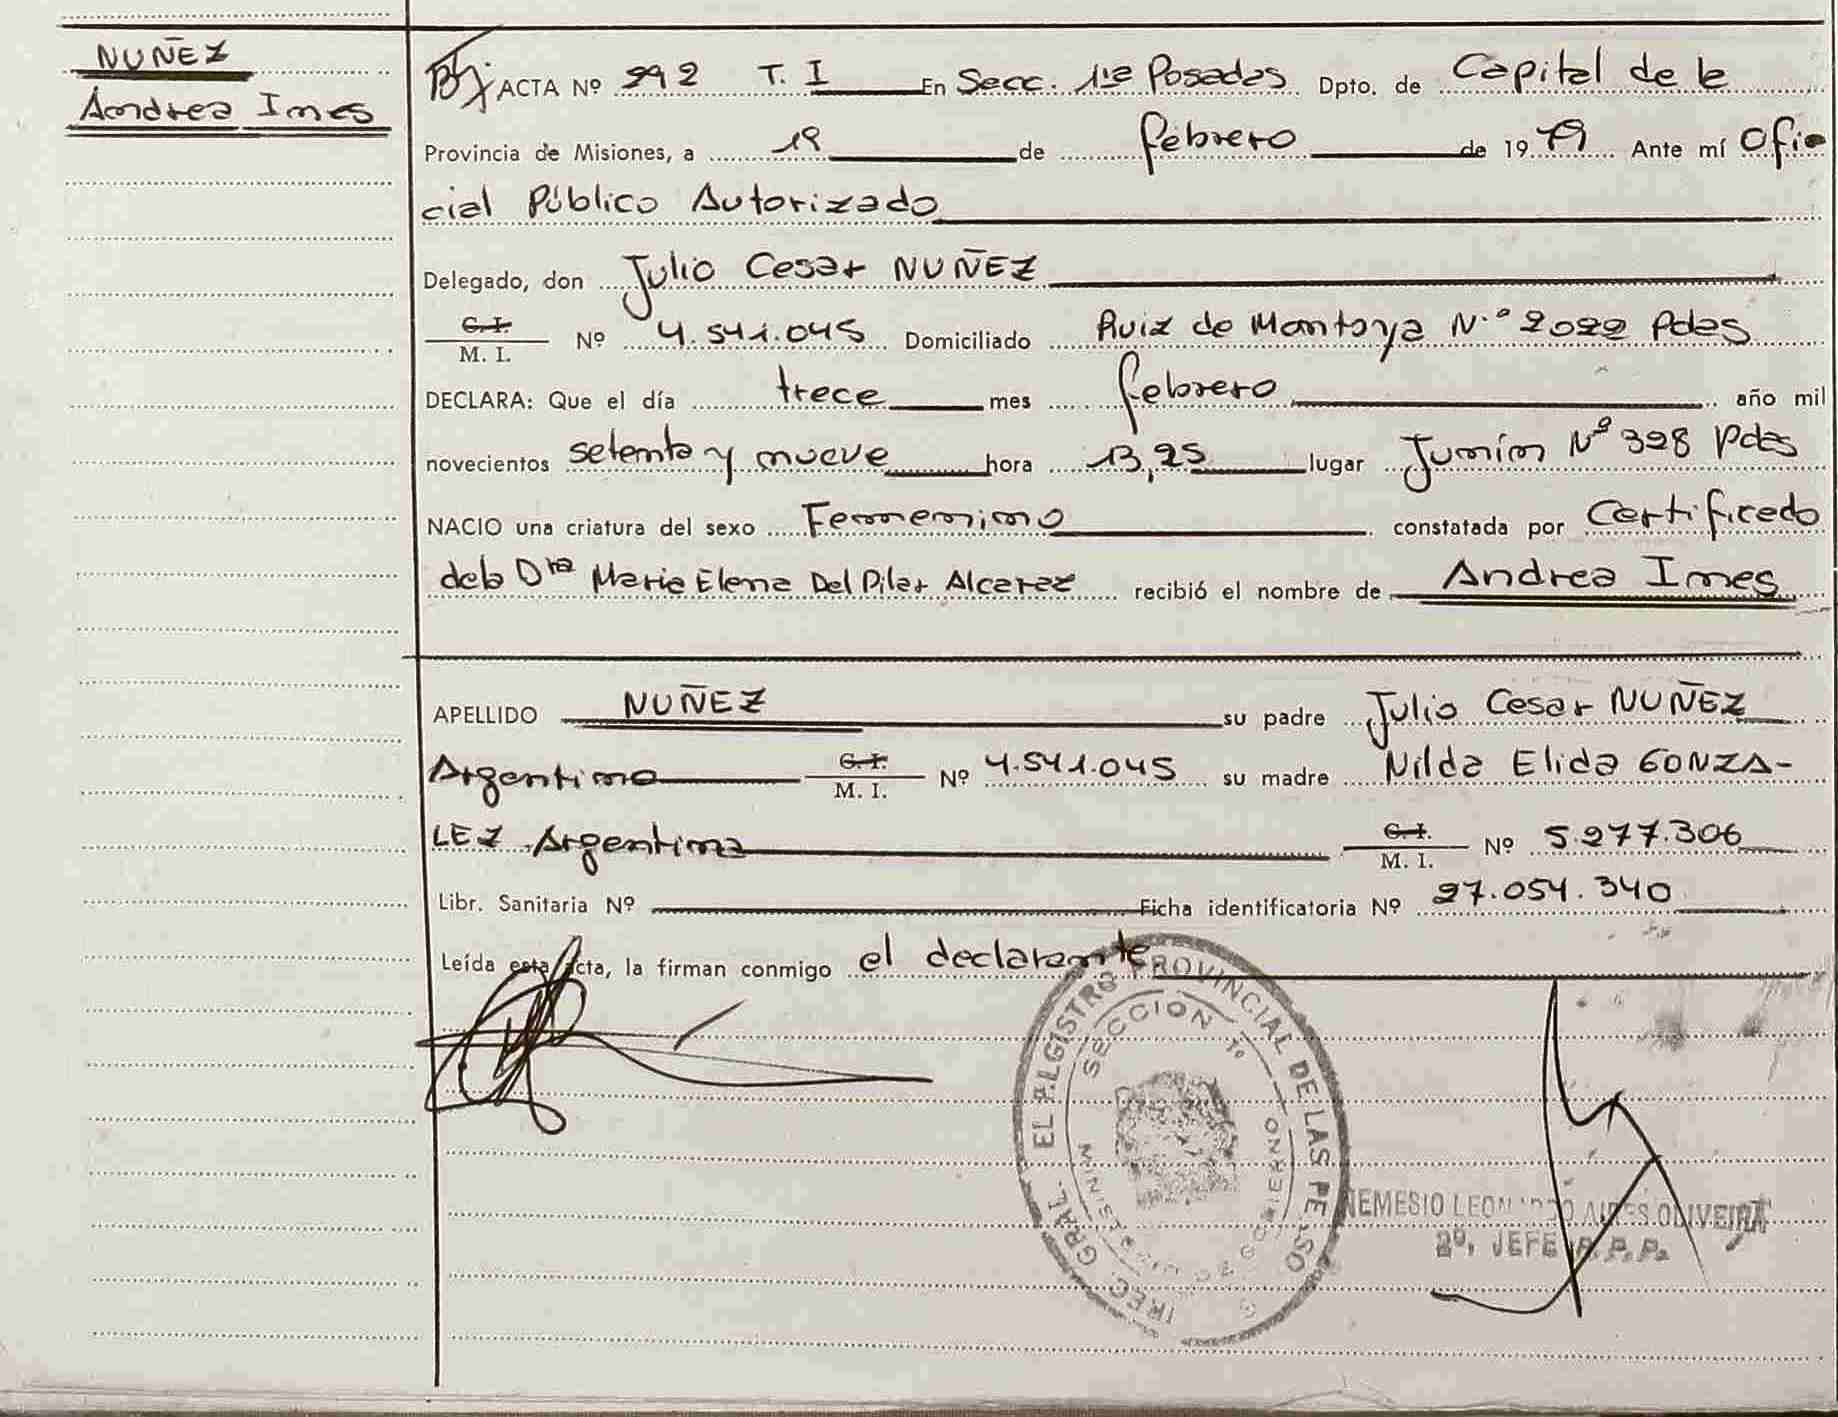 NUÑEZ
Andrea Ines
ACTA Nº 292 T. I En Secc. 1ra Posadas Dpto. de Capital de la
Provincia de Misiones, a 19 de febrero de 1979 Ante mí Ofi
cial Público Autorizado
Delegado, don Julio Cesar NUÑEZ
C. I.
M. I. Nº 4.541.045 Domiciliado Ruiz de Montoya N.º 2022 Pdas
DECLARA: Que el día trece mes febrero año mil
novecientos setenta y nueve hora 13,25 lugar Junín Nº 328 Pdas
NACIO una criatura del sexo Femenino constatada por Certificado
de la Dra Maria Elena Del Pilar Alcaraz recibió el nombre de Andrea Ines
APELLIDO NUÑEZ su padre Julio Cesar NUÑEZ
Argentino C. I. M. I. Nº 4.541.045 su madre Nilda Elida GONZA-
LEZ Argentina C. I. M. I. Nº 5.277.306
Libr. Sanitaria Nº Ficha identificatoria Nº 27.054.340
Leída esta acta, la firman conmigo el declarante
IREC. GRAL. EL REGISTRO PROVINCIAL DE LAS PE SO
SECCION 1º
MINISTERIO DE GOBIERNO
NEMESIO LEONARDO AIRES OLIVEIRA
2º. JEFE R. P. P.